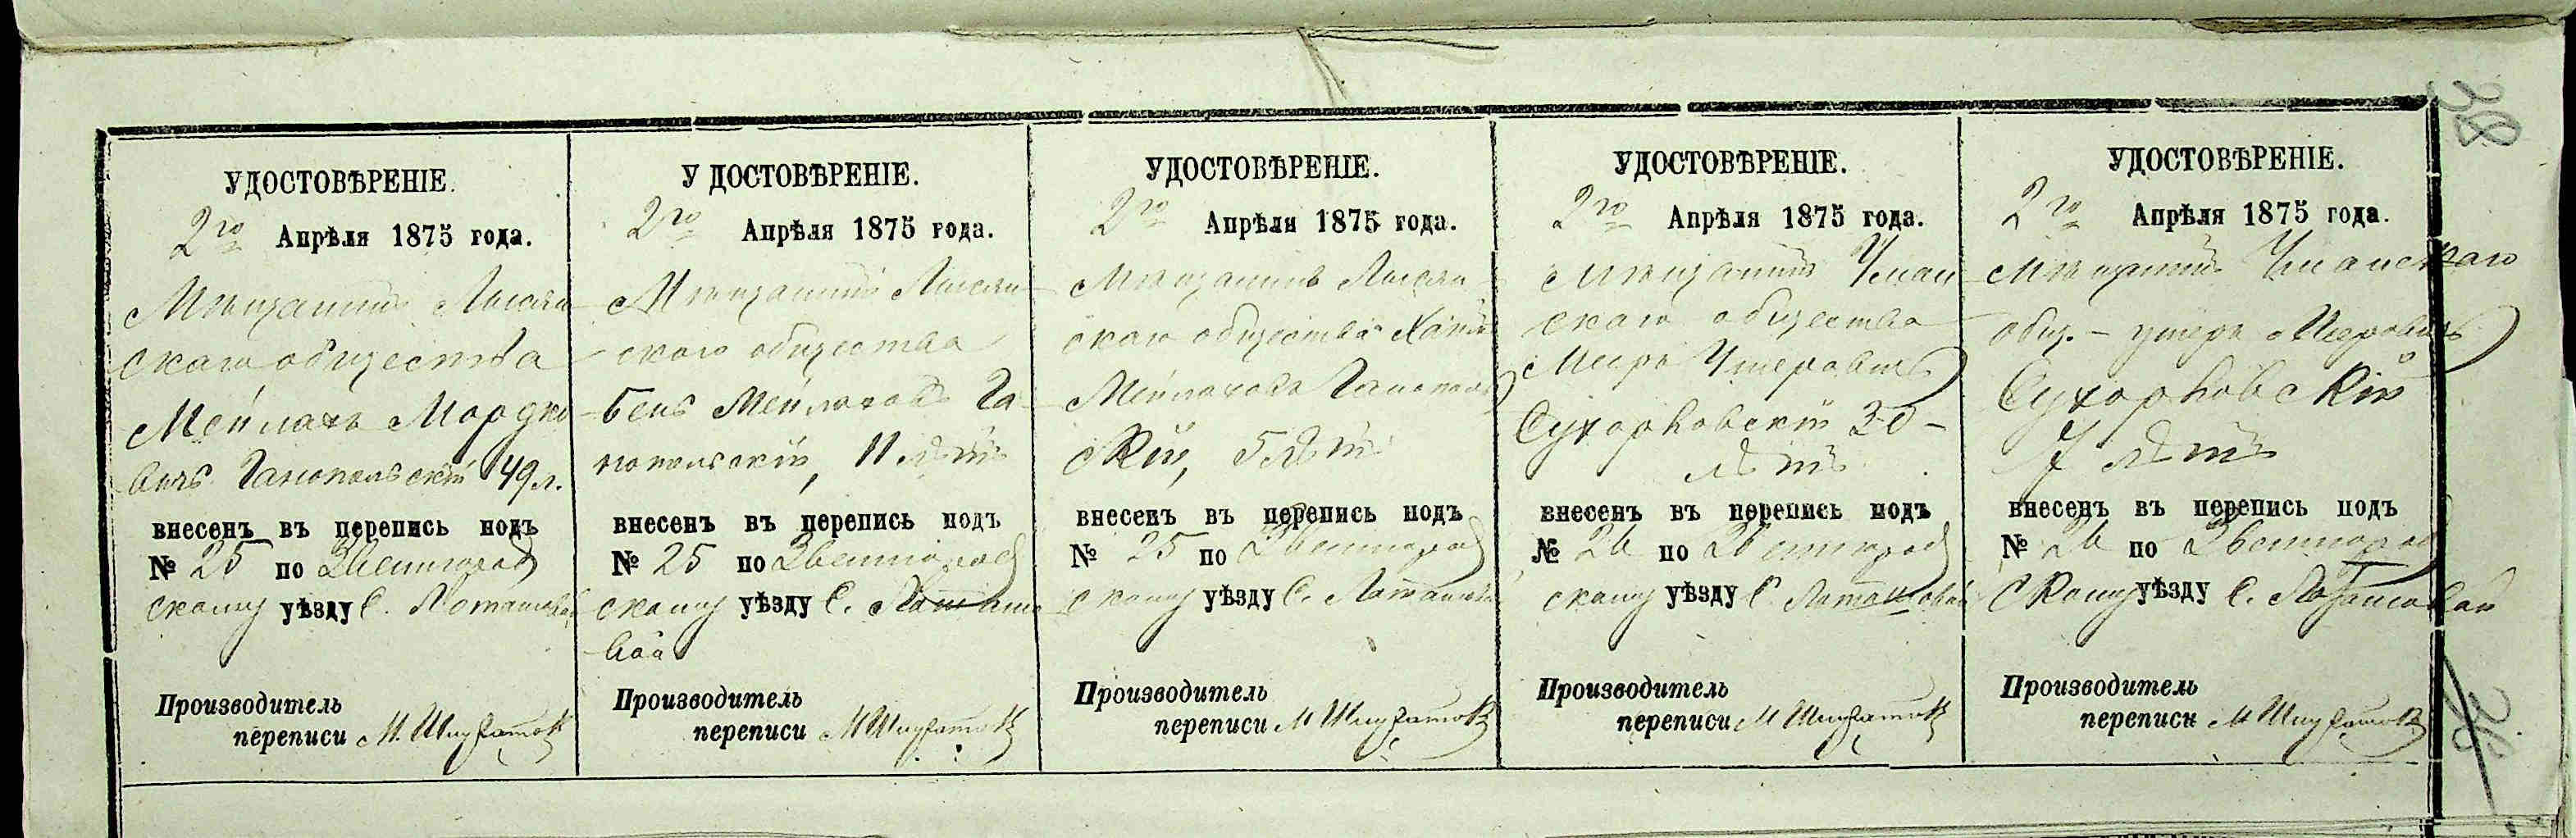 38
УДОСТОВѢРЕНІЕ.
2го Апрѣля 1875 года.
Мѣщанинъ Лысян
скаго общества
Мейлахъ Мордко
вичъ Ганопольскій 49 л.
внесенъ въ перепись подъ
№ 25 по Звенигород
скому уѣзду С. Поташовой
Производитель
переписи М.
УДОСТОВѢРЕНІЕ.
2го Апрѣля 1875 года.
Мѣщанинъ Лысян
скаго общества
Бень Мейлаховъ Га
нопольскій, 11 лѣтъ
внесенъ въ перепись подъ
№ 25 по Звенигород
скому уѣзду С. Поташо
вой
Производитель
переписи М.
УДОСТОВѢРЕНІЕ.
2го Апрѣля 1875 года.
Мѣщанинъ Лысян
скаго общества
Мейлаховъ Ганополь
скій, 5 лѣтъ
внесенъ въ перепись подъ
№ 25 по Звенигород
скому уѣзду С. Поташовой
Производитель
переписи М.
УДОСТОВѢРЕНІЕ.
2го Апрѣля 1875 года.
Мѣщанинъ Уман
скаго общества
Мееръ Ушеровичъ
Сухорковскій 30
лѣтъ
внесенъ въ перепись подъ
№ 26 по Звенигород
скому уѣзду С. Поташовой
Производитель
переписи М.
УДОСТОВѢРЕНІЕ.
2го Апрѣля 1875 года.
Мѣщанинъ Уманскаго
общ. - Ушеръ Меровичъ
Сухорковскій
7 лѣтъ
внесенъ въ перепись подъ
№ 26 по Звенигород
скому уѣзду С. Поташовой
Производитель
переписи М.